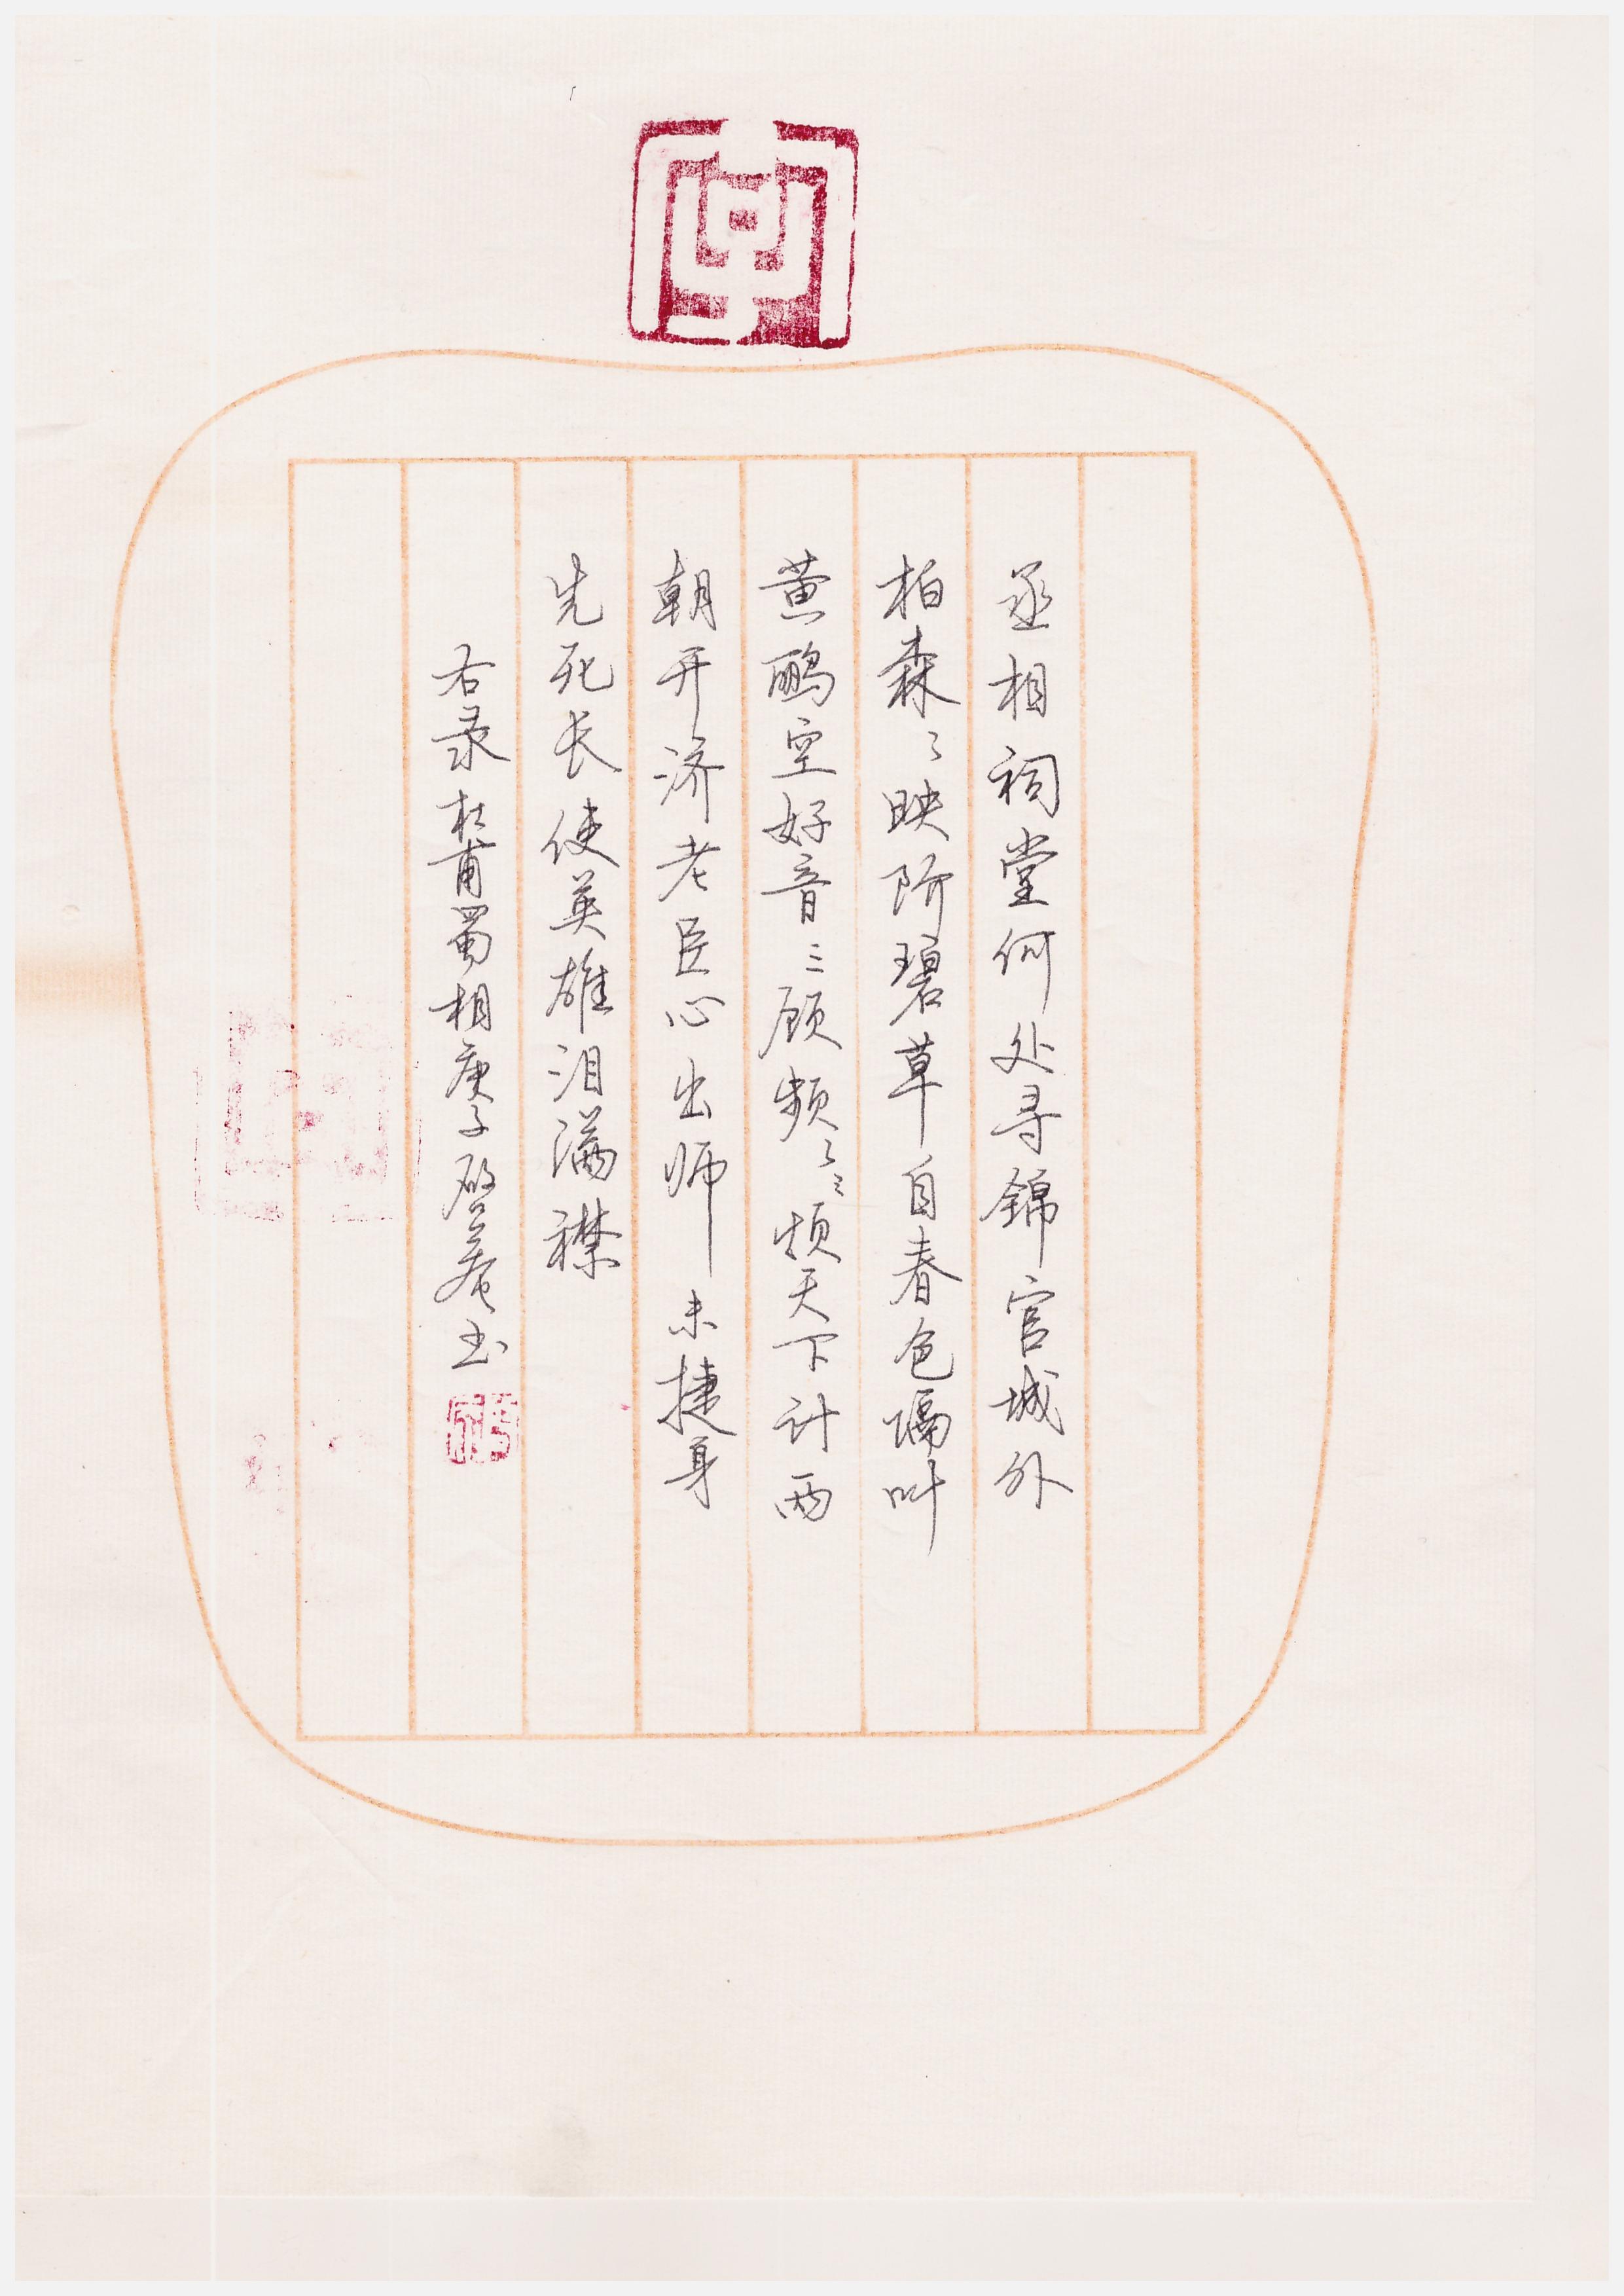 丞相祠堂何处寻錦官城外
柏森〻映阶碧草自春色隔叶
黄鹂空好音三顾频〻〻烦天下计两
朝开济老臣心出师未捷身
先死长使英雄泪满襟
右录杜甫蜀相庚子啓菴书